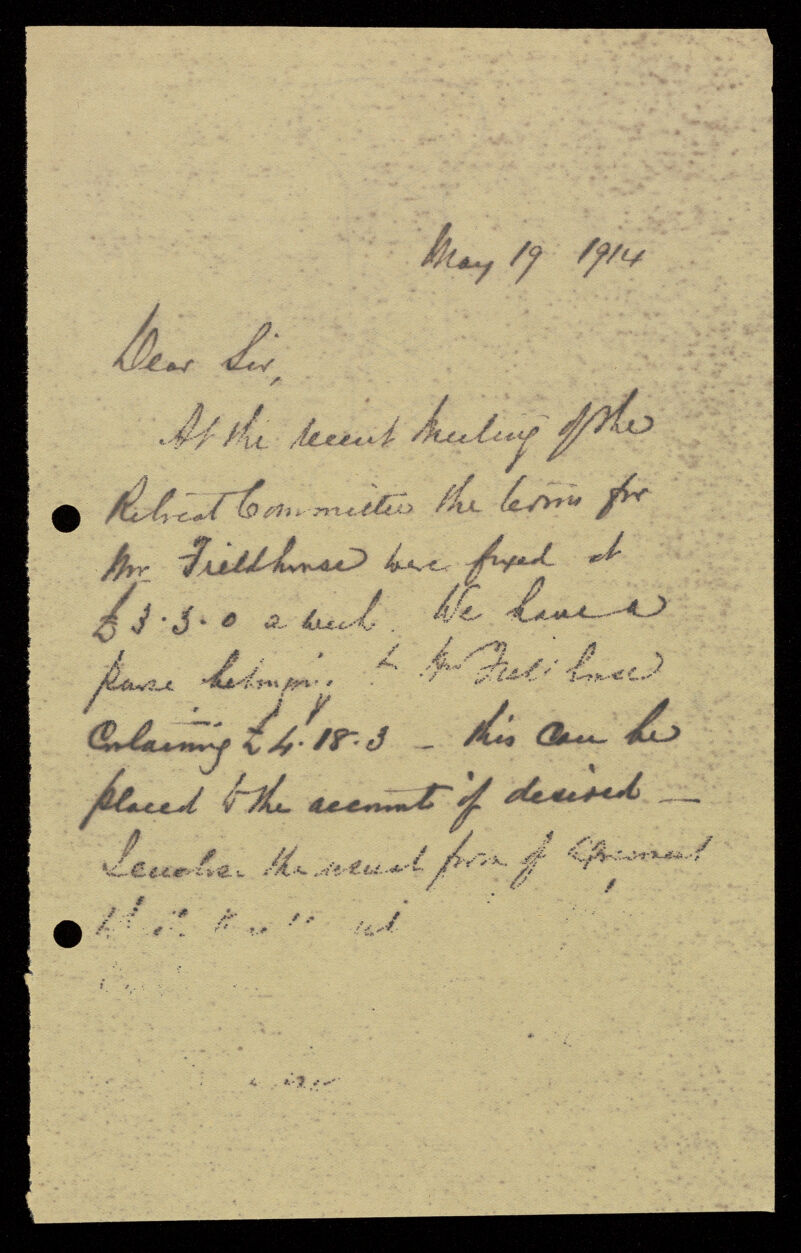 May 19 1914
Dear Sir,
At the recent meeting of the
Retreat Committee the terms for
Mr Fieldhouse were fixed at
£3.3.0 a week. We have a
purse belonging to Mr Fieldhouse
Containing £4.18.3 – this can be
placed to the account if desired –
I enclose the usual form of Agreement